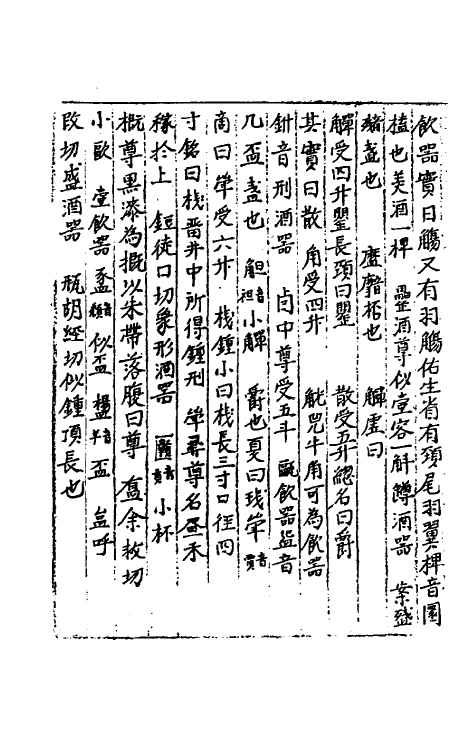 飲器實曰觴又有羽觴佑生肖有頭尾羽翼椑音園
榼也美酒一椑　罍酒尊似壺容一斛　罇酒器　案盛
醆盞也　㽅㽅㭒也　觶虛曰
觶受四升斝長頸曰斝　散受五升總名曰爵
其實曰散　角受四升　觥兕牛角可為飲器
鈃音刑酒器　卣中尊受五斗　甌飲器盌音
几盃盞也　觛音袒小觶　爵也夏曰琖斝音賈
商曰斝受六升　棧鍾小曰棧長三寸口徑四
寸銘曰棧晋井中所得鍾刑　斝彞尊名畫禾
稼於上　鋀徒口切象形酒器　匱音貢小杯
概尊黑漆為概以朱帶落腹曰尊　㿿余救切
小歐　壺飲器　㼜音似盃　㿻音半盃　㿽呼
改切盛酒器　瓶胡經切似鍾項長也